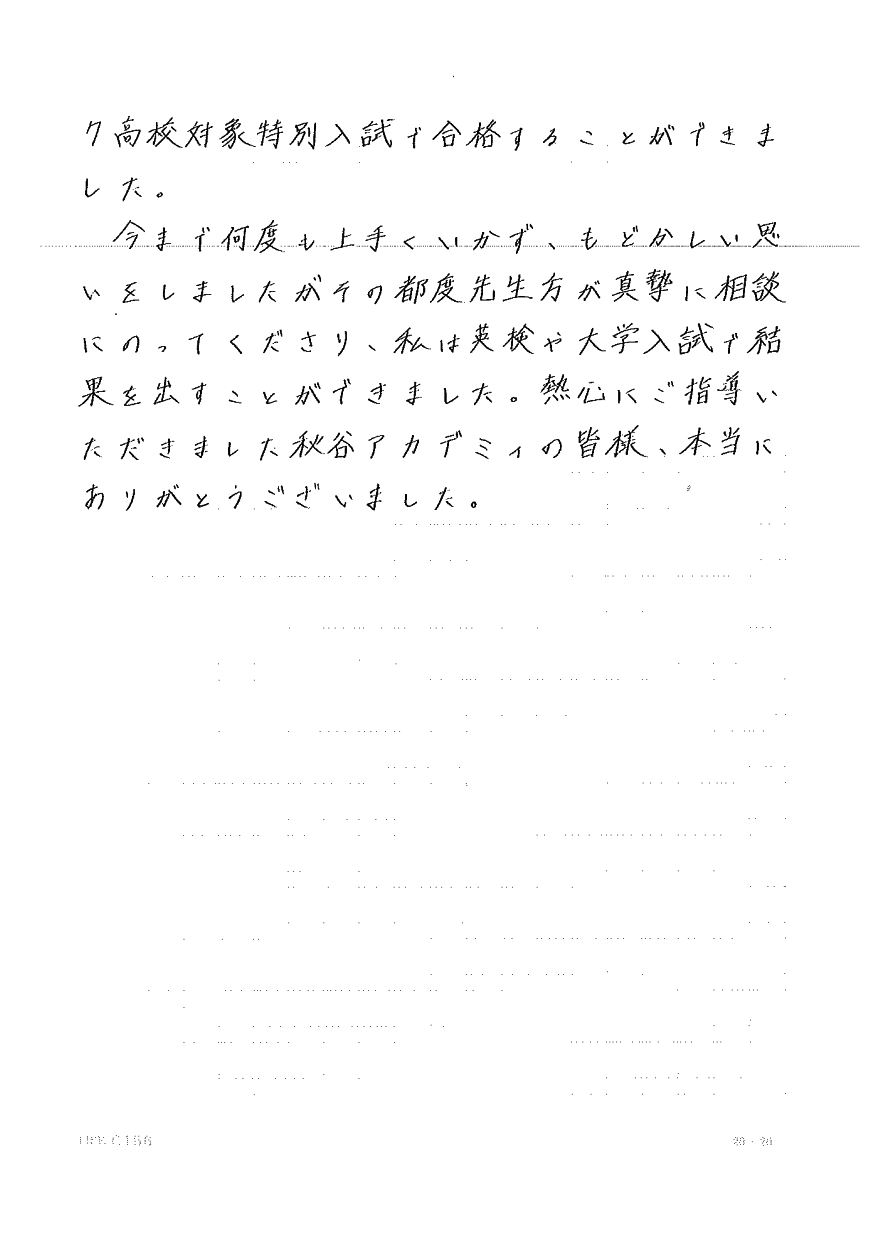 ク高校対象特別入試で合格することができま
した。
今まで何度も上手くいかず、もどかしい思
いをしましたがその都度先生方が真摯に相談
にのってくださり、私は英検や大学入試で結
果を出すことができました。熱心にご指導い
ただきました秋谷アカデミィの皆様、本当に
ありがとうございました。
LIFE C156
20 × 20